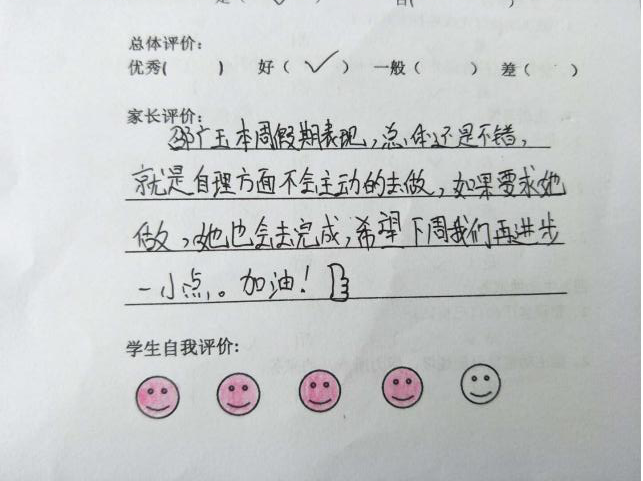 总体评价：
优秀(　　) 好（ ✓ ） 一般（　　） 差（　　）
家长评价：
邵广玉本周假期表现，总体还是不错，
就是自理方面不会主动的去做，如果要求她
做，她也会去完成，希望下周我们再进步
一小点。加油！
学生自我评价：